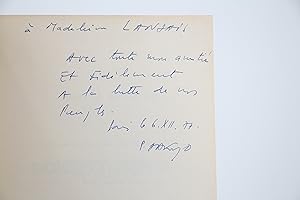 à Madeleine LANJAIS
AVEC toute mon amitié
Et fidèlement
A la lutte de nos
Peuples.